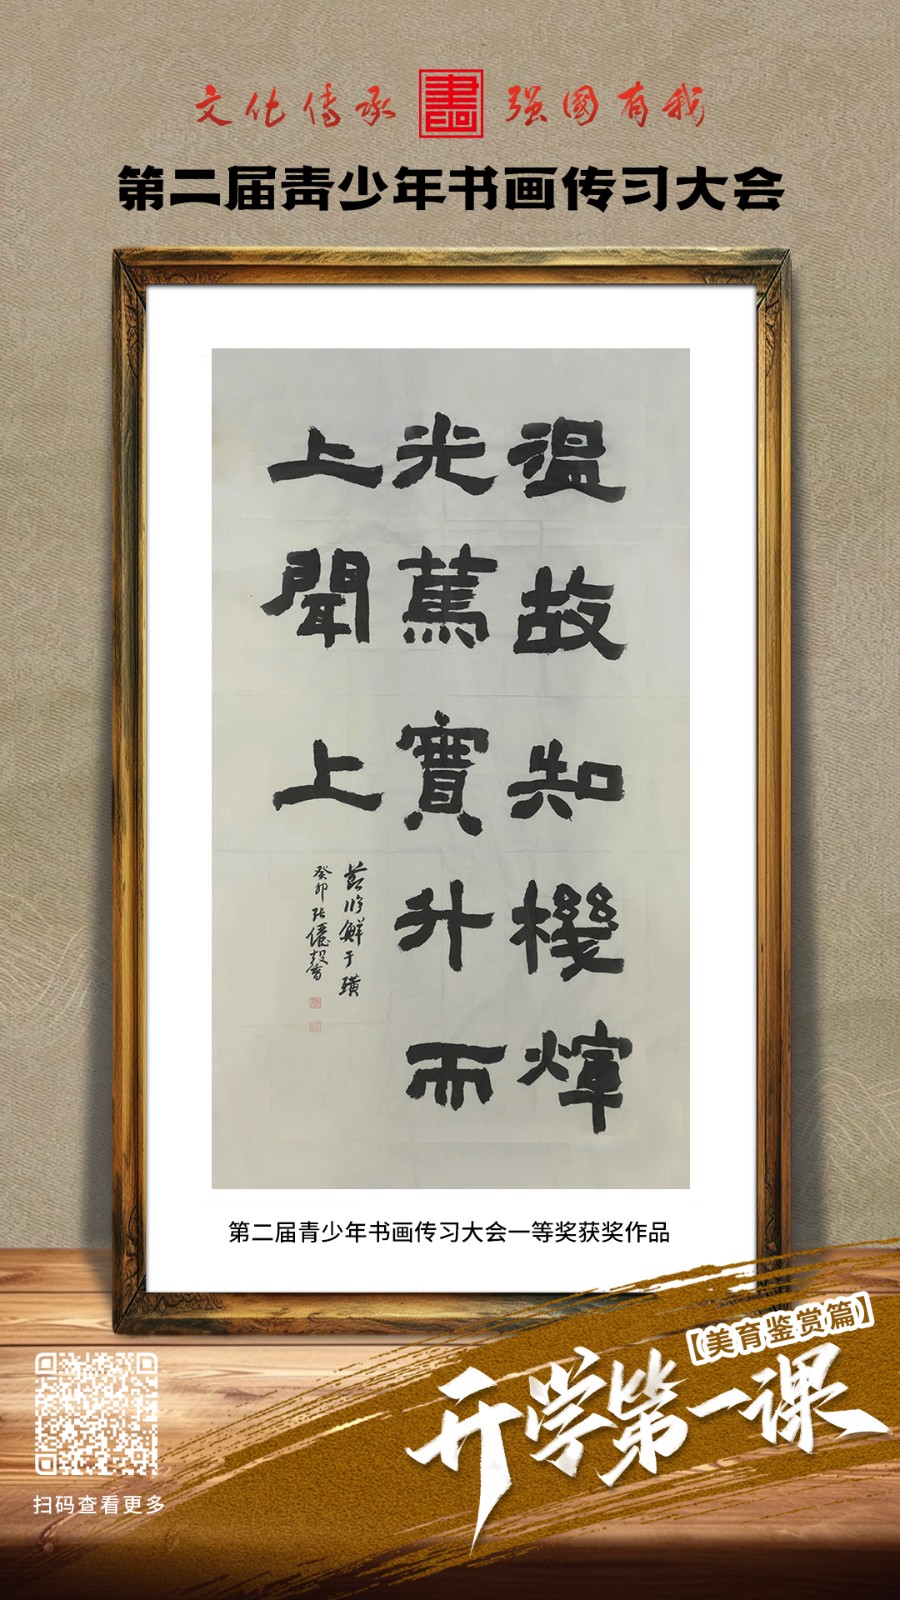 文化传承 書画 强國有我
第二届青少年书画传习大会
温故知機煇
光篤實升而
上聞上
鲜于璜
癸卯
第二届青少年书画传习大会一等奖获奖作品
【美育鉴赏篇】
开学第一课
扫码查看更多